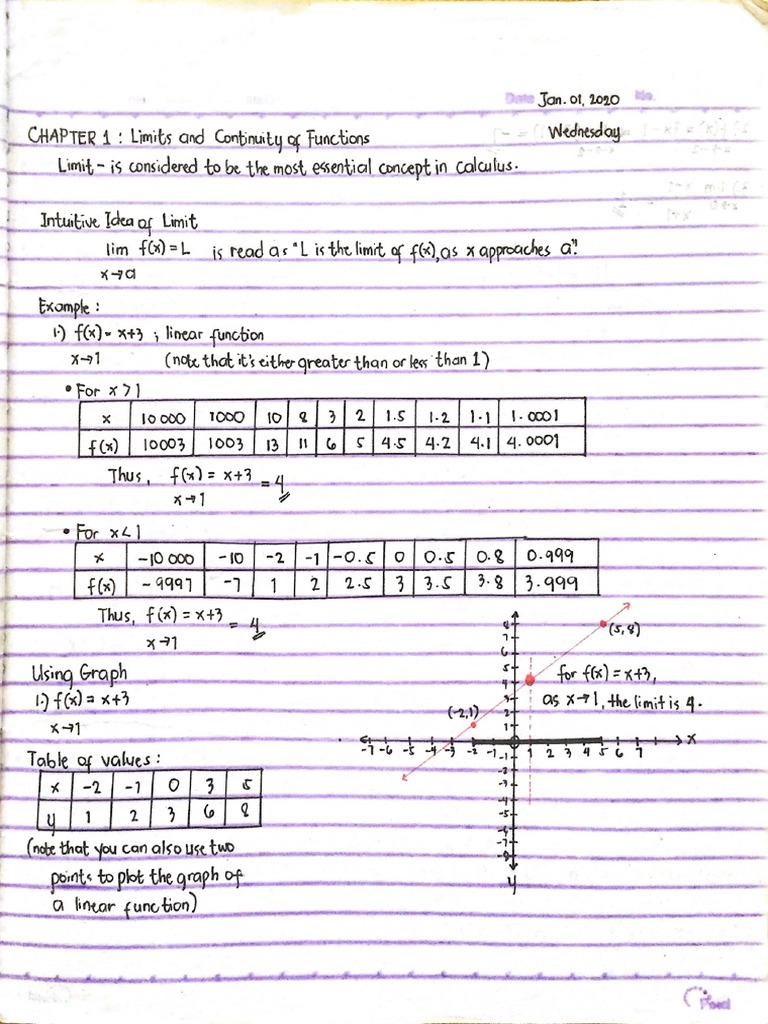 Date Jan. 01, 2020 No.
CHAPTER 1 : Limits and Continuity of Functions Wednesday
Limit - is considered to be the most essential concept in calculus.
Intuitive Idea of Limit
lim f(x) = L is read as "L is the limit of f(x), as x approaches a".
x→a
Example :
1.) f(x) = x+3 ; linear function
x→1 (note that it's either greater than or less than 1)
• For x > 1
x 10 000 1000 10 8 3 2 1.5 1.2 1.1 1.0001
f(x) 10003 1003 13 11 6 5 4.5 4.2 4.1 4.0001
Thus, f(x) = x+3 = 4
x→1
• For x < 1
x -10 000 -10 -2 -1 -0.5 0 0.5 0.8 0.999
f(x) -9997 -7 1 2 2.5 3 3.5 3.8 3.999
Thus, f(x) = x+3 = 4
x→1
Using Graph
1.) f(x) = x+3
x→1
Table of values :
x -2 -1 0 3 5
y 1 2 3 6 8
(note that you can also use two
points to plot the graph of
a linear function)
8
7
6
5
4
3
2
1
(5,8)
for f(x) = x+3,
as x→1, the limit is 4.
(-2,1)
-7 -6 -5 -4 -3 -2 -1 1 2 3 4 5 6 7 x
-1
-2
-3
-4
-5
-6
-7
-8
y